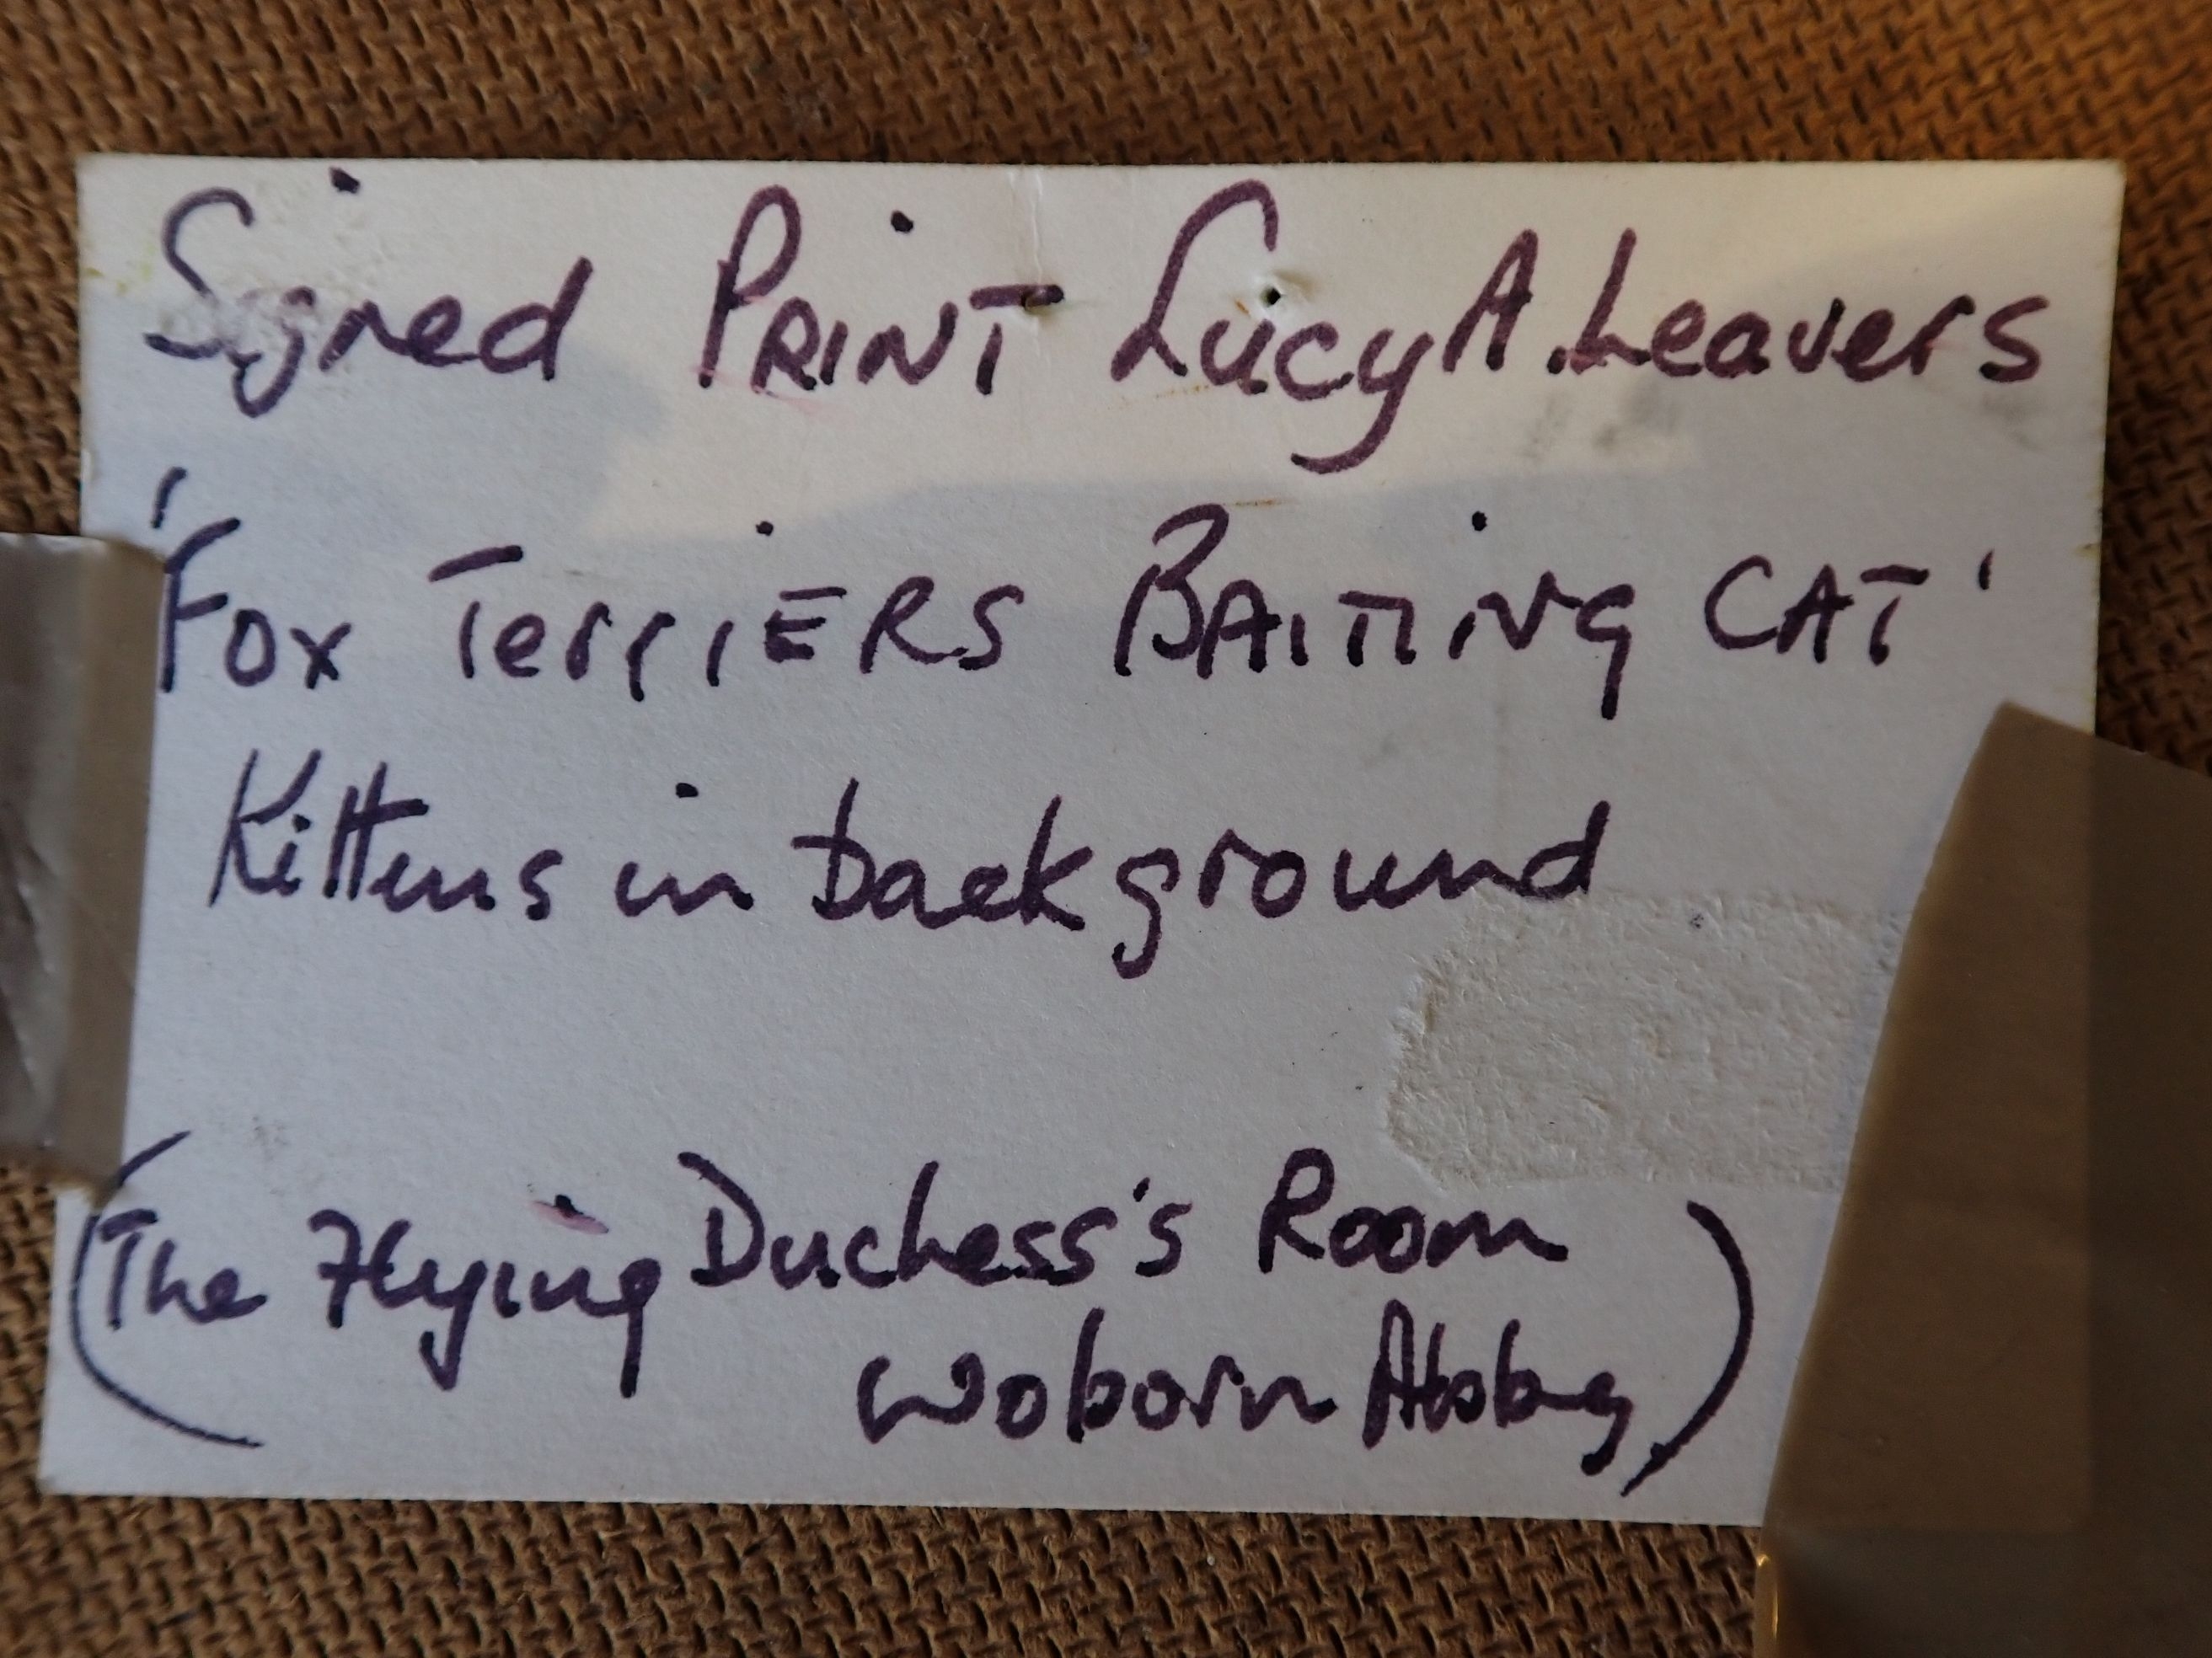 Signed PRINT Lucy A. Leavers
'Fox TerriERS BAITING CAT'
Kittens in background
(The Flying Duchess's Room
Woborn Abbey)